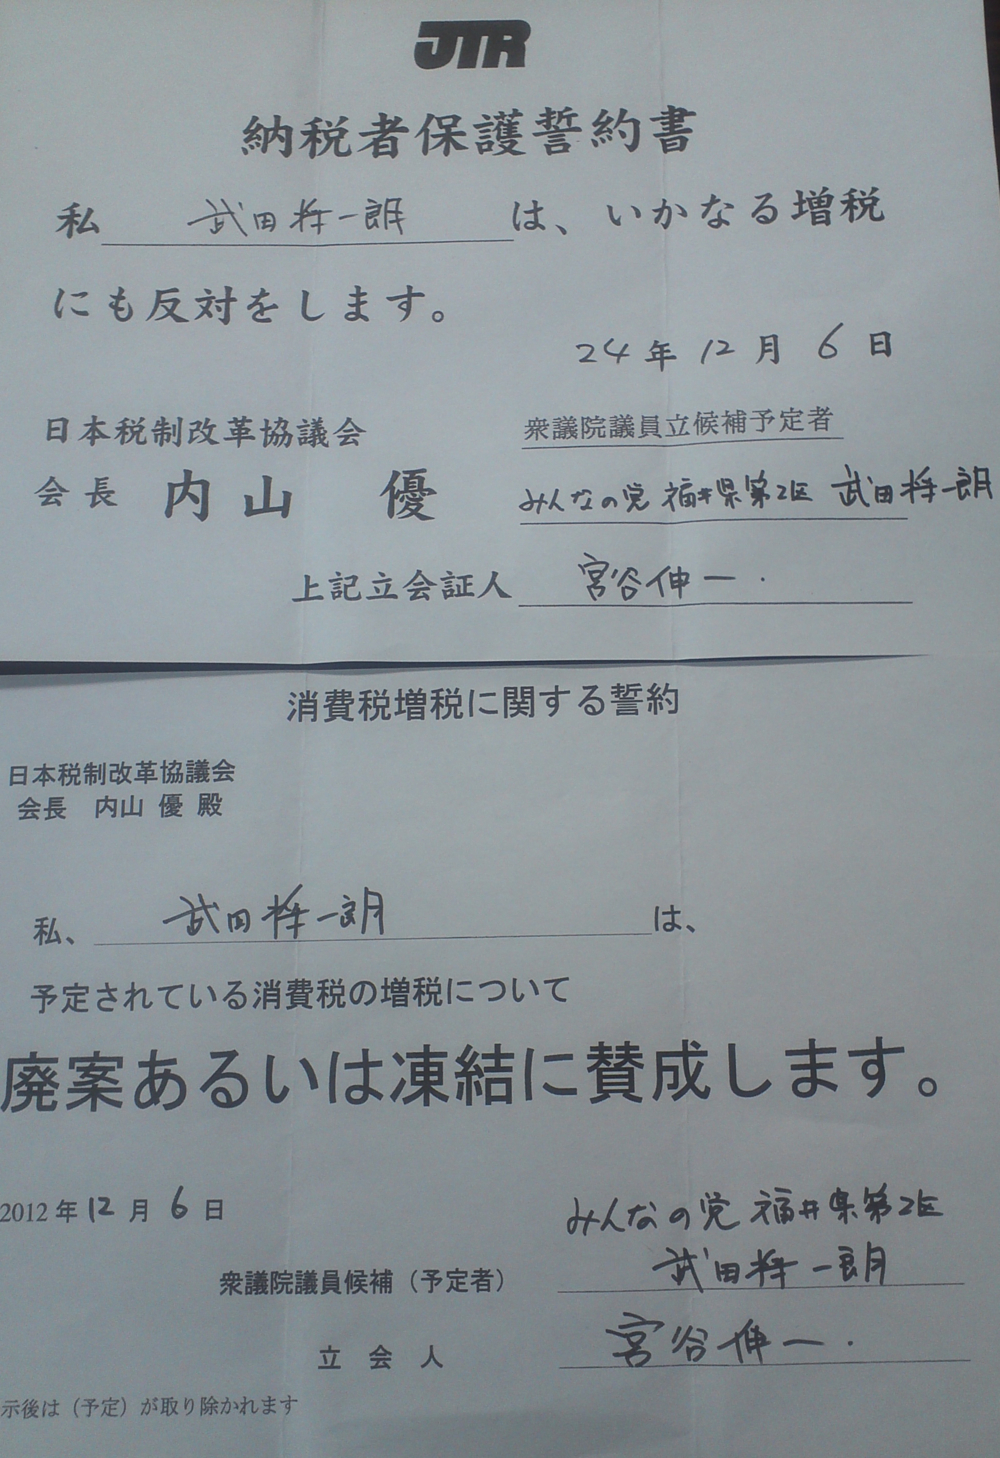 JTR
納税者保護誓約書
私 武田将一朗 は、いかなる増税
にも反対をします。
24年12月6日
日本税制改革協議会
会長 内山 優
衆議院議員立候補予定者
みんなの党 福井県第2区 武田将一朗
上記立会証人 宮谷伸一.
消費税増税に関する誓約
日本税制改革協議会
会長 内山 優 殿
私、 武田将一朗 は、
予定されている消費税の増税について
廃案あるいは凍結に賛成します。
2012年12月6日
みんなの党 福井県第2区
衆議院議員候補(予定者) 武田将一朗
立会人 宮谷伸一.
示後は(予定)が取り除かれます